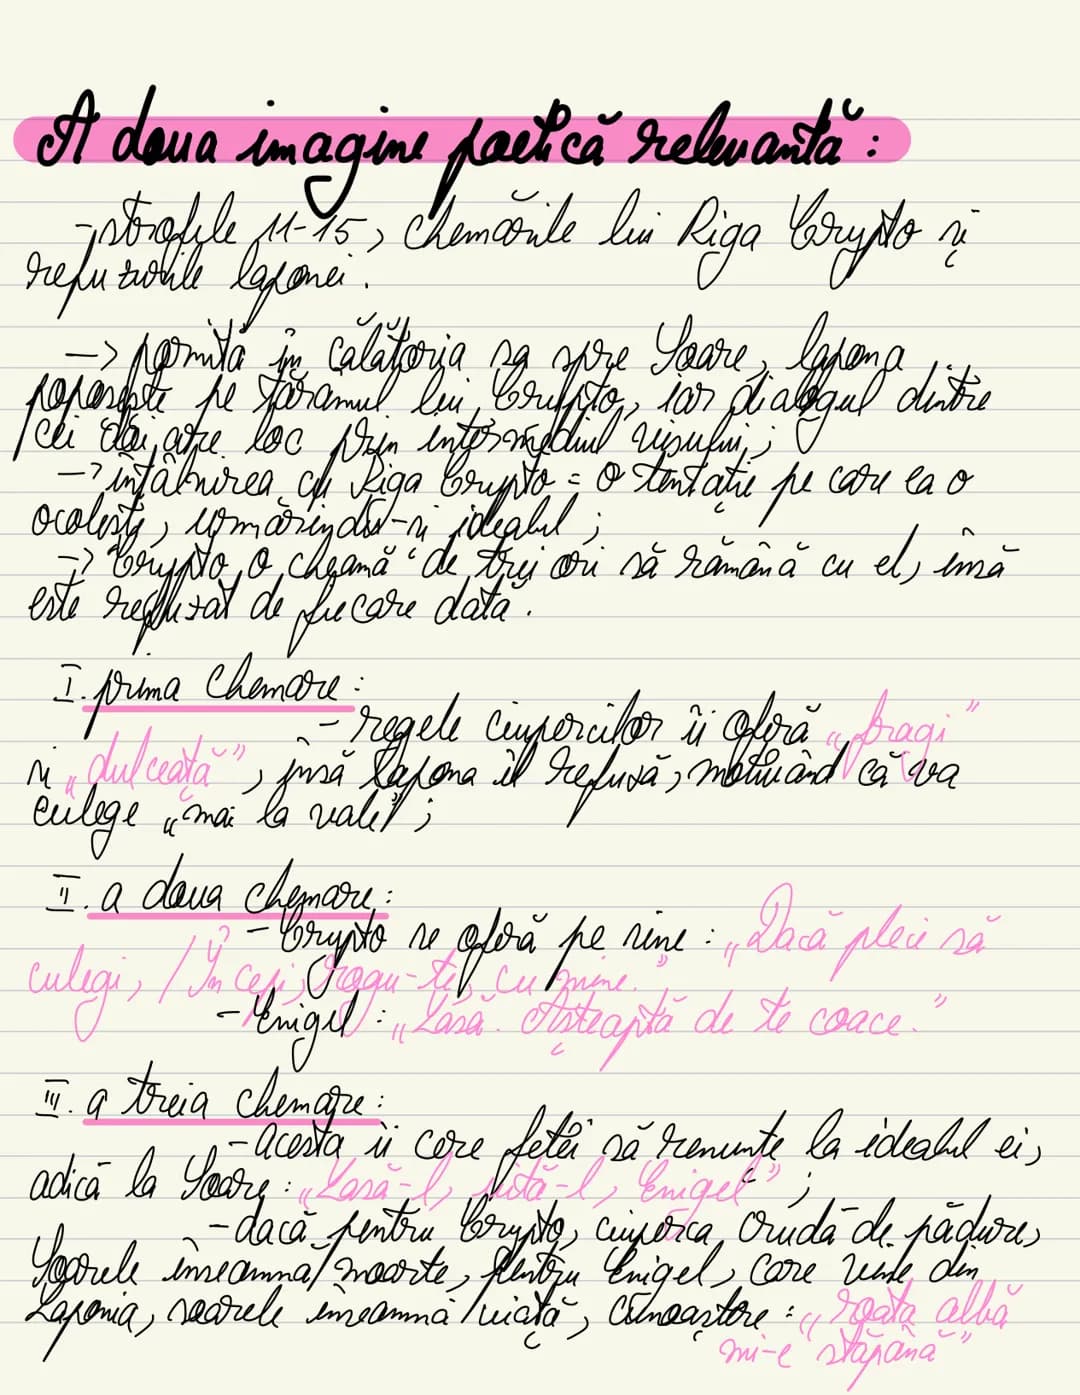 A doua imagine poetică relevantă:
-strofele 11-15, chemările lui Riga Crypto și
refuzurile laponei.
-> pornită în călătoria sa spre Soare, lapona
poposește pe tărâmul lui Crypto, iar dialogul dintre
cei doi are loc prin intermediul visului;
-> întâlnirea cu Riga Crypto = o tentație pe care ea o
ocolește, urmărindu-și idealul;
-> Crypto o cheamă de trei ori să rămână cu el, însă
este refuzat de fiecare dată.
I. prima chemare:
- regele ciupercilor îi oferă „fragi”
și „dulceață”, însă lapona îl refuză, motivând că va
culege „mai la vale”;
II. a doua chemare:
- Crypto se oferă pe sine: „Dacă pleci să
culegi, / Începi, rogu-te, cu mine.”
- Enigel: „Lasă. Așteaptă de te coace.”
III. a treia chemare:
- acesta îi cere fetei să renunțe la idealul ei,
adică la Soare: „Lasă-l, uită-l, Enigel”;
- dacă pentru Crypto, ciuperca crudă de pădure,
Soarele înseamnă moarte, pentru Enigel, care vine din
Laponia, soarele înseamnă viață, cunoaștere: „roata albă
mi-e stăpână”